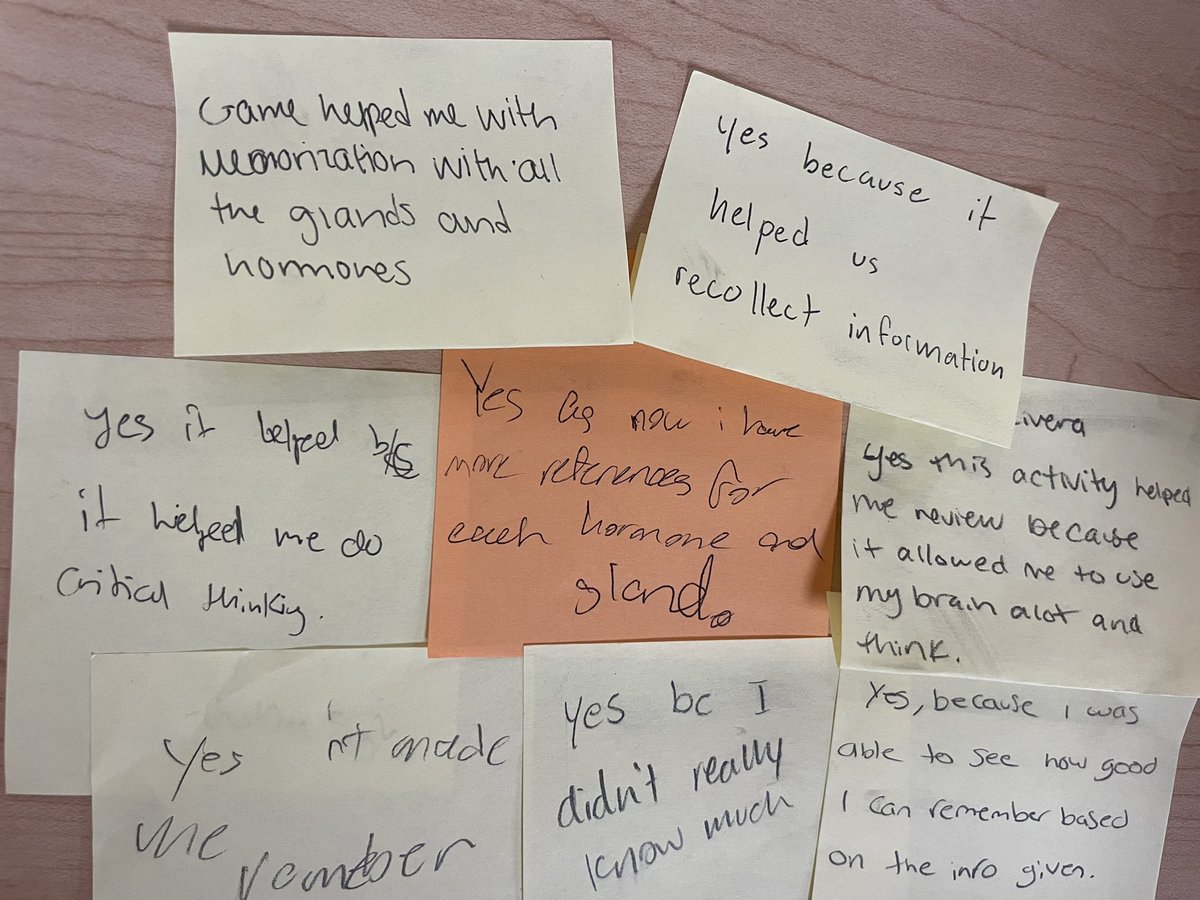 Game helped me with
memorization with all
the glands and
hormones
yes because it
helped us
recollect information
yes it helped b/c
it helped me do
critical thinking.
Yes as now i have
more references for
each hormone and
gland.
ivera
yes this activity helped
me review because
it allowed me to use
my brain alot and
think.
Yes it made
me remember
yes bc I
didn't really
know much
Yes, because I was
able to see how good
I can remember based
on the info given.